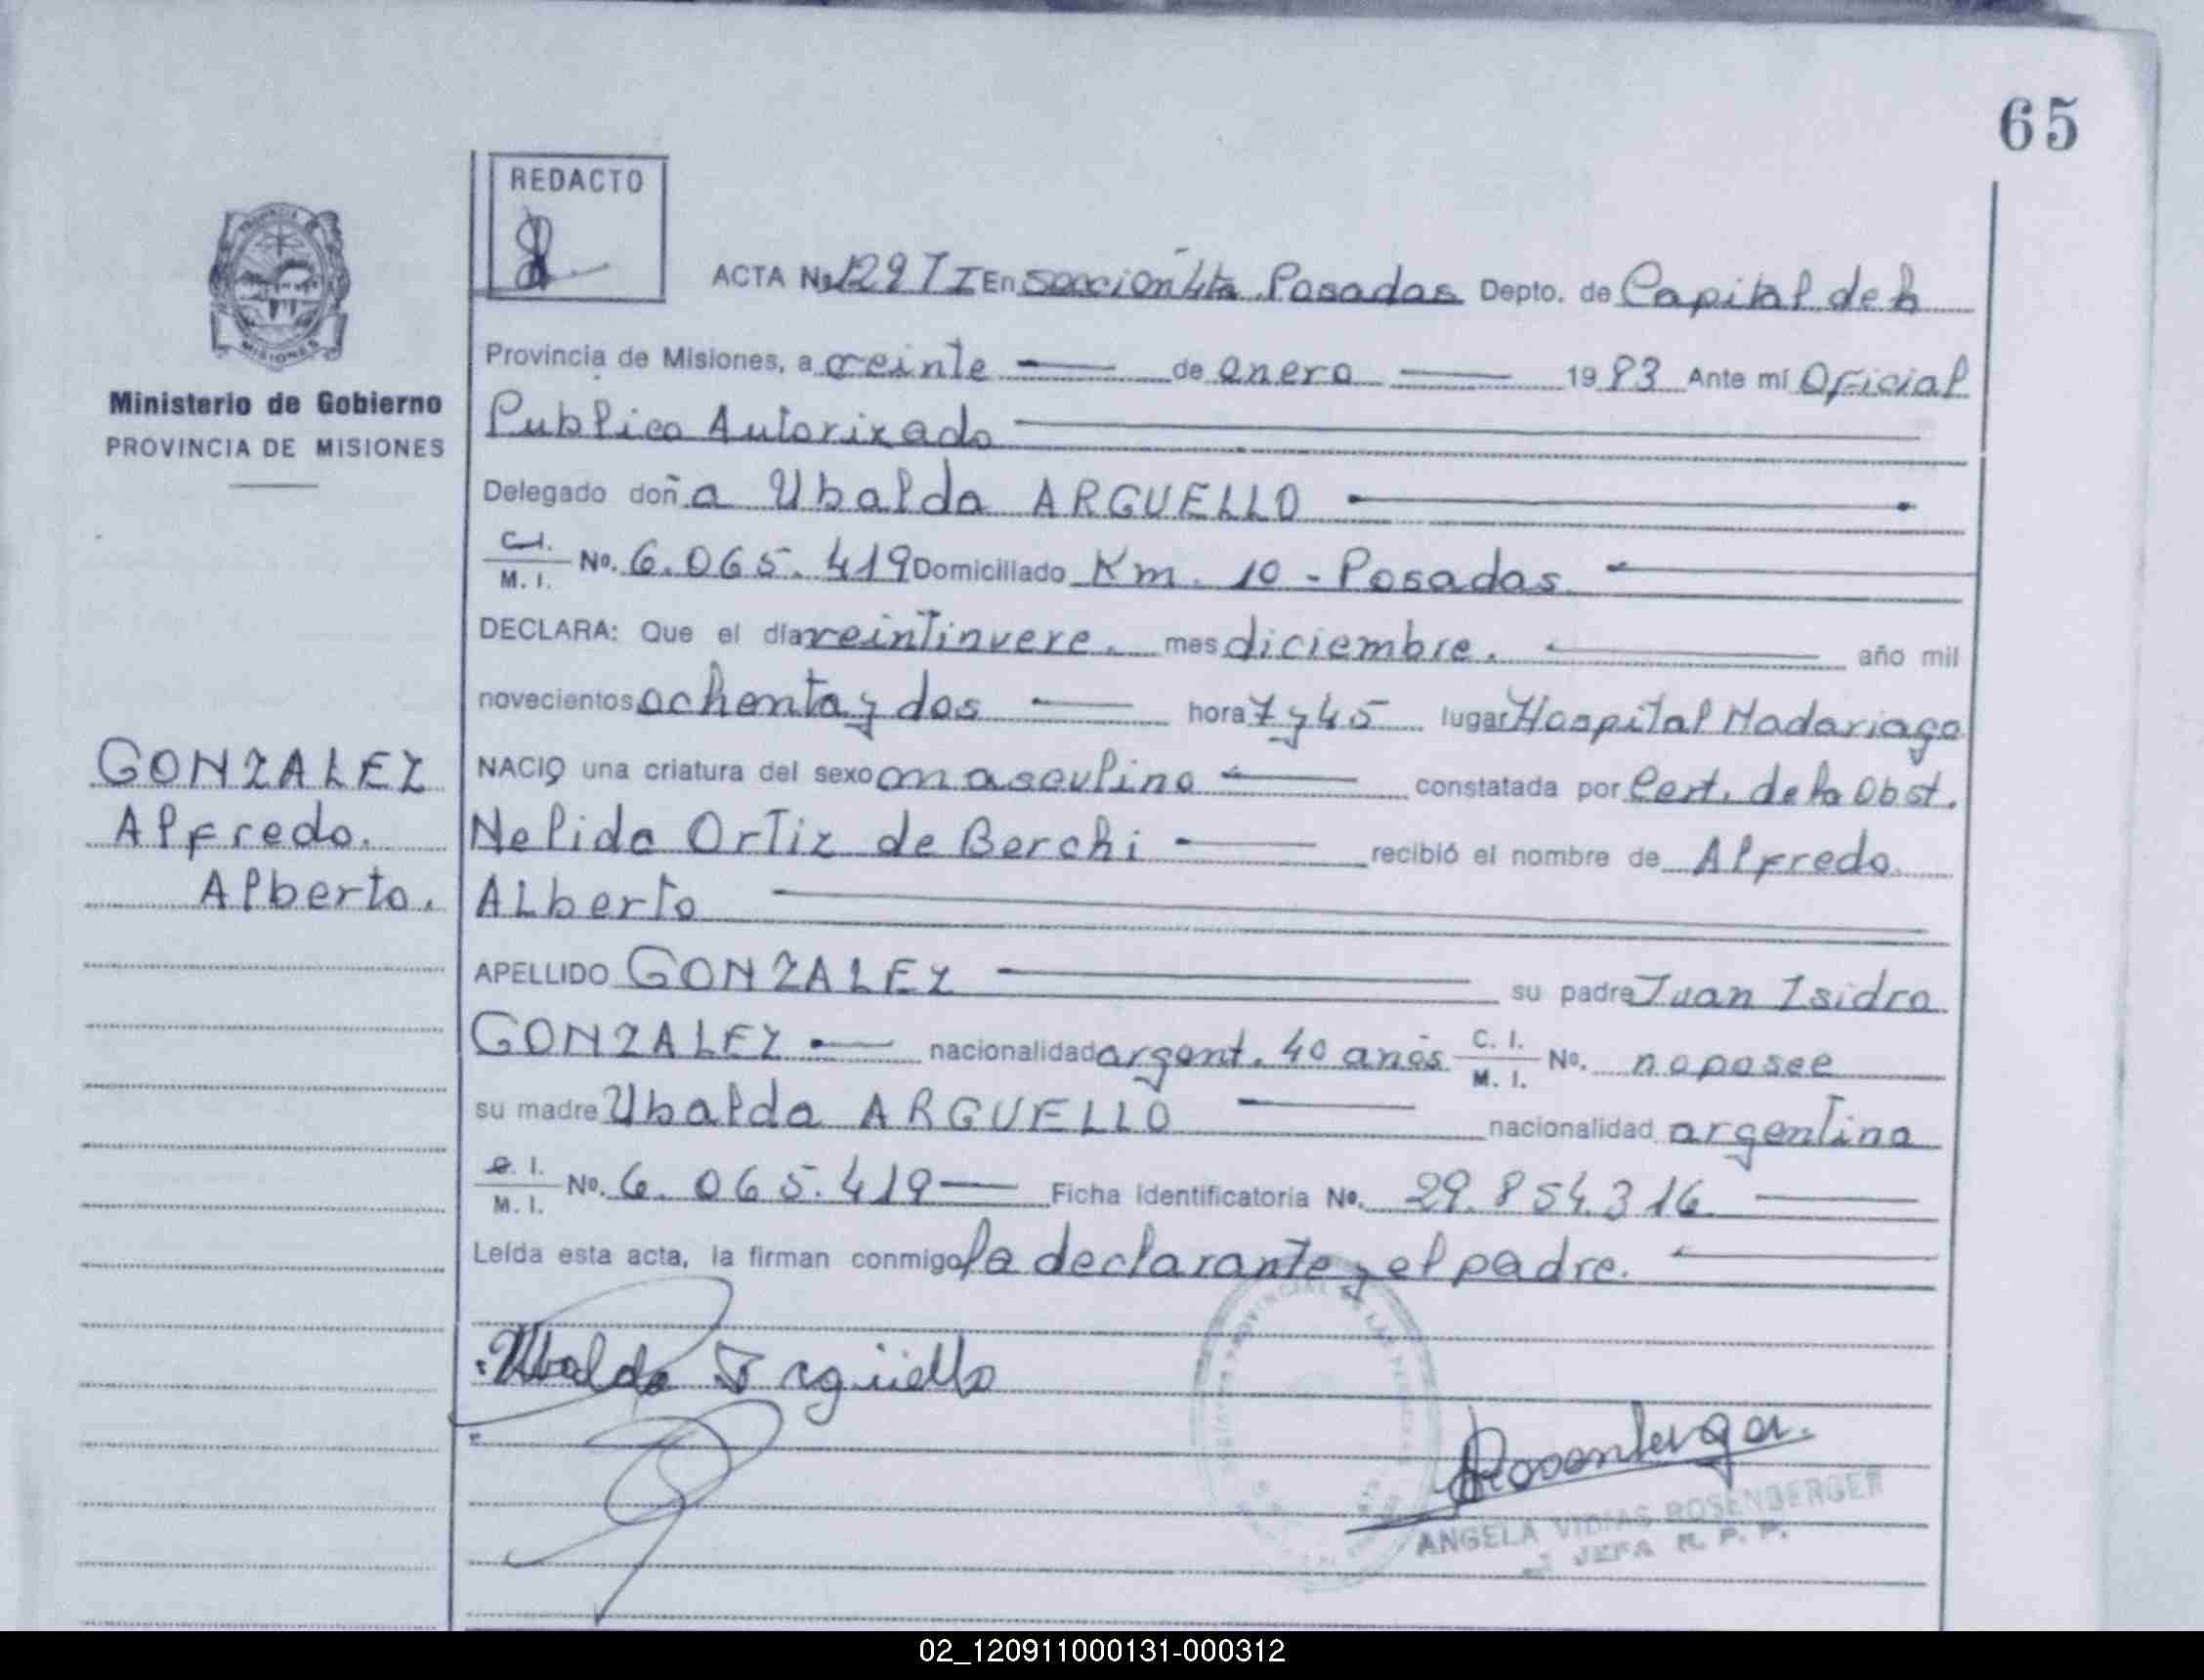 65
REDACTO
ACTA No 129 T I En sección 4ta Posadas Depto. de Capital de la
Provincia de Misiones, a veinte de enero 1983 Ante mí Oficial
Ministerio de Gobierno
PROVINCIA DE MISIONES
Publico Autorizado
Delegado doña Ubalda ARGUELLO
C.I.
M. I. No. 6.065.419 Domiciliado Km. 10 - Posadas
DECLARA: Que el día veintinueve. mes diciembre. año mil
novecientos ochenta y dos hora 7 y 45 lugar Hospital Madariaga
GONZALEZ
Alfredo.
Alberto.
NACIO una criatura del sexo masculino constatada por Cert. de la Obst.
Nelida Ortiz de Berchi recibió el nombre de Alfredo
ALberto
APELLIDO GONZALEZ su padre Juan Isidro
GONZALEZ nacionalidad argent. 40 años C. I.
M. I. No. no posee
su madre Ubalda ARGUELLO nacionalidad argentina
C. I.
M. I. No. 6.065.419 Ficha Identificatoria No. 29.854.316
Leída esta acta, la firman conmigo la declarante y el padre.
Ubalda Argüello
Rosenberger.
ANGELA VIDMAS ROSENBERGER
JEFA R. P. P.
MISIONES
02_120911000131-000312